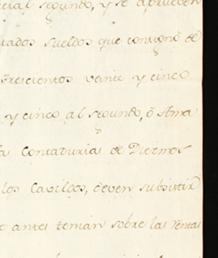 cial segundo, y se aprueven
tados sueldos que consigno de
trescientos veinte y cinco
y cinco al segundo, ô Ama
la Contaduria de Diezmos
los Cavildos, deven subsistir
antes tenian sobre las rentas